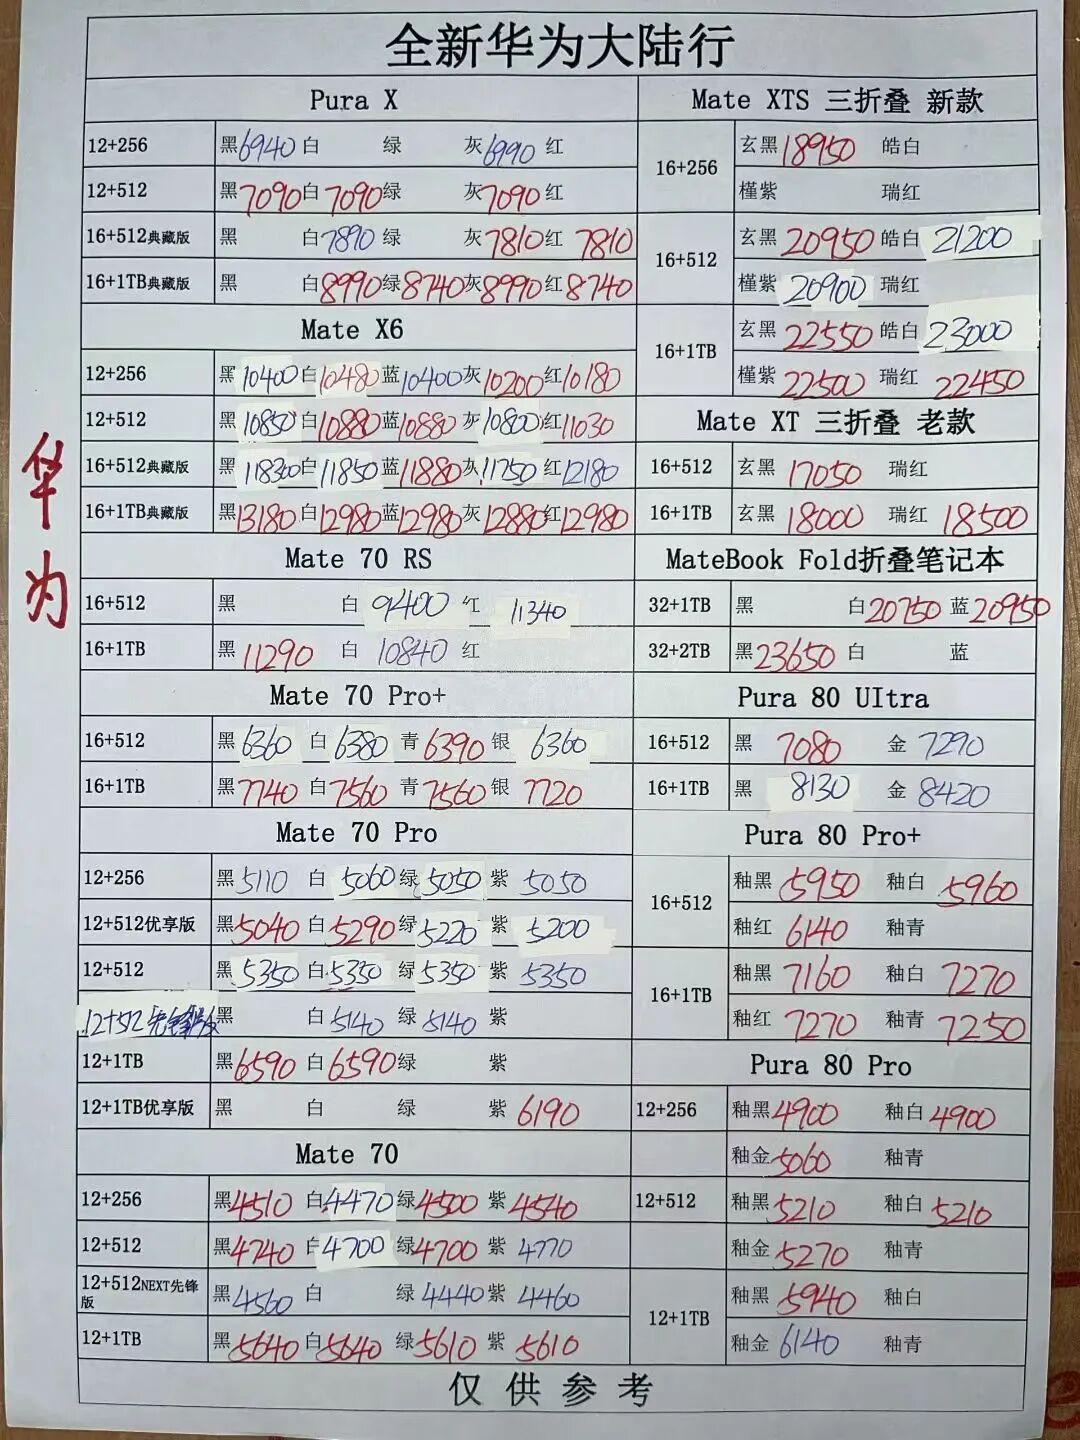 全新华为大陆行
华为
Pura X
12+256 黑6940 白 绿 灰6990 红
12+512 黑7090 白7090 绿 灰7090 红
16+512典藏版 黑 白7890 绿 灰7810 红7810
16+1TB典藏版 黑 白8990 绿8740 灰8990 红8740
Mate X6
12+256 黑10400 白10480 蓝10400 灰10200 红10180
12+512 黑10850 白10880 蓝10880 灰10800 红11030
16+512典藏版 黑11830 白11850 蓝11880 灰11750 红12180
16+1TB典藏版 黑13180 白12980 蓝12980 灰12880 红12980
Mate 70 RS
16+512 黑 白9400 红11340
16+1TB 黑11290 白10840 红
Mate 70 Pro+
16+512 黑6360 白6380 青6390 银6360
16+1TB 黑7740 白7560 青7560 银7720
Mate 70 Pro
12+256 黑5110 白5060 绿5050 紫5050
12+512优享版 黑5040 白5290 绿5220 紫5200
12+512 黑5350 白5350 绿5350 紫5350
12+512先锋版 黑 白5140 绿5140 紫
12+1TB 黑6590 白6590 绿 紫
12+1TB优享版 黑 白 绿 紫6190
Mate 70
12+256 黑4510 白4470 绿4500 紫4540
12+512 黑4740 白4700 绿4700 紫4770
12+512NEXT先锋版 黑4560 白 绿4440 紫4460
12+1TB 黑5640 白5640 绿5610 紫5610
Mate XTS 三折叠 新款
16+256 玄黑18950 皓白
槿紫 瑞红
16+512 玄黑20950 皓白21200
槿紫20900 瑞红
16+1TB 玄黑22550 皓白23000
槿紫22500 瑞红22450
Mate XT 三折叠 老款
16+512 玄黑17050 瑞红
16+1TB 玄黑18000 瑞红18500
MateBook Fold折叠笔记本
32+1TB 黑 白20750 蓝20950
32+2TB 黑23650 白 蓝
Pura 80 UItra
16+512 黑7080 金7290
16+1TB 黑8130 金8420
Pura 80 Pro+
16+512 釉黑5950 釉白5960
釉红6140 釉青
16+1TB 釉黑7160 釉白7270
釉红7270 釉青7250
Pura 80 Pro
12+256 釉黑4900 釉白4900
釉金5060 釉青
12+512 釉黑5210 釉白5210
釉金5270 釉青
12+1TB 釉黑5940 釉白
釉金6140 釉青
仅供参考